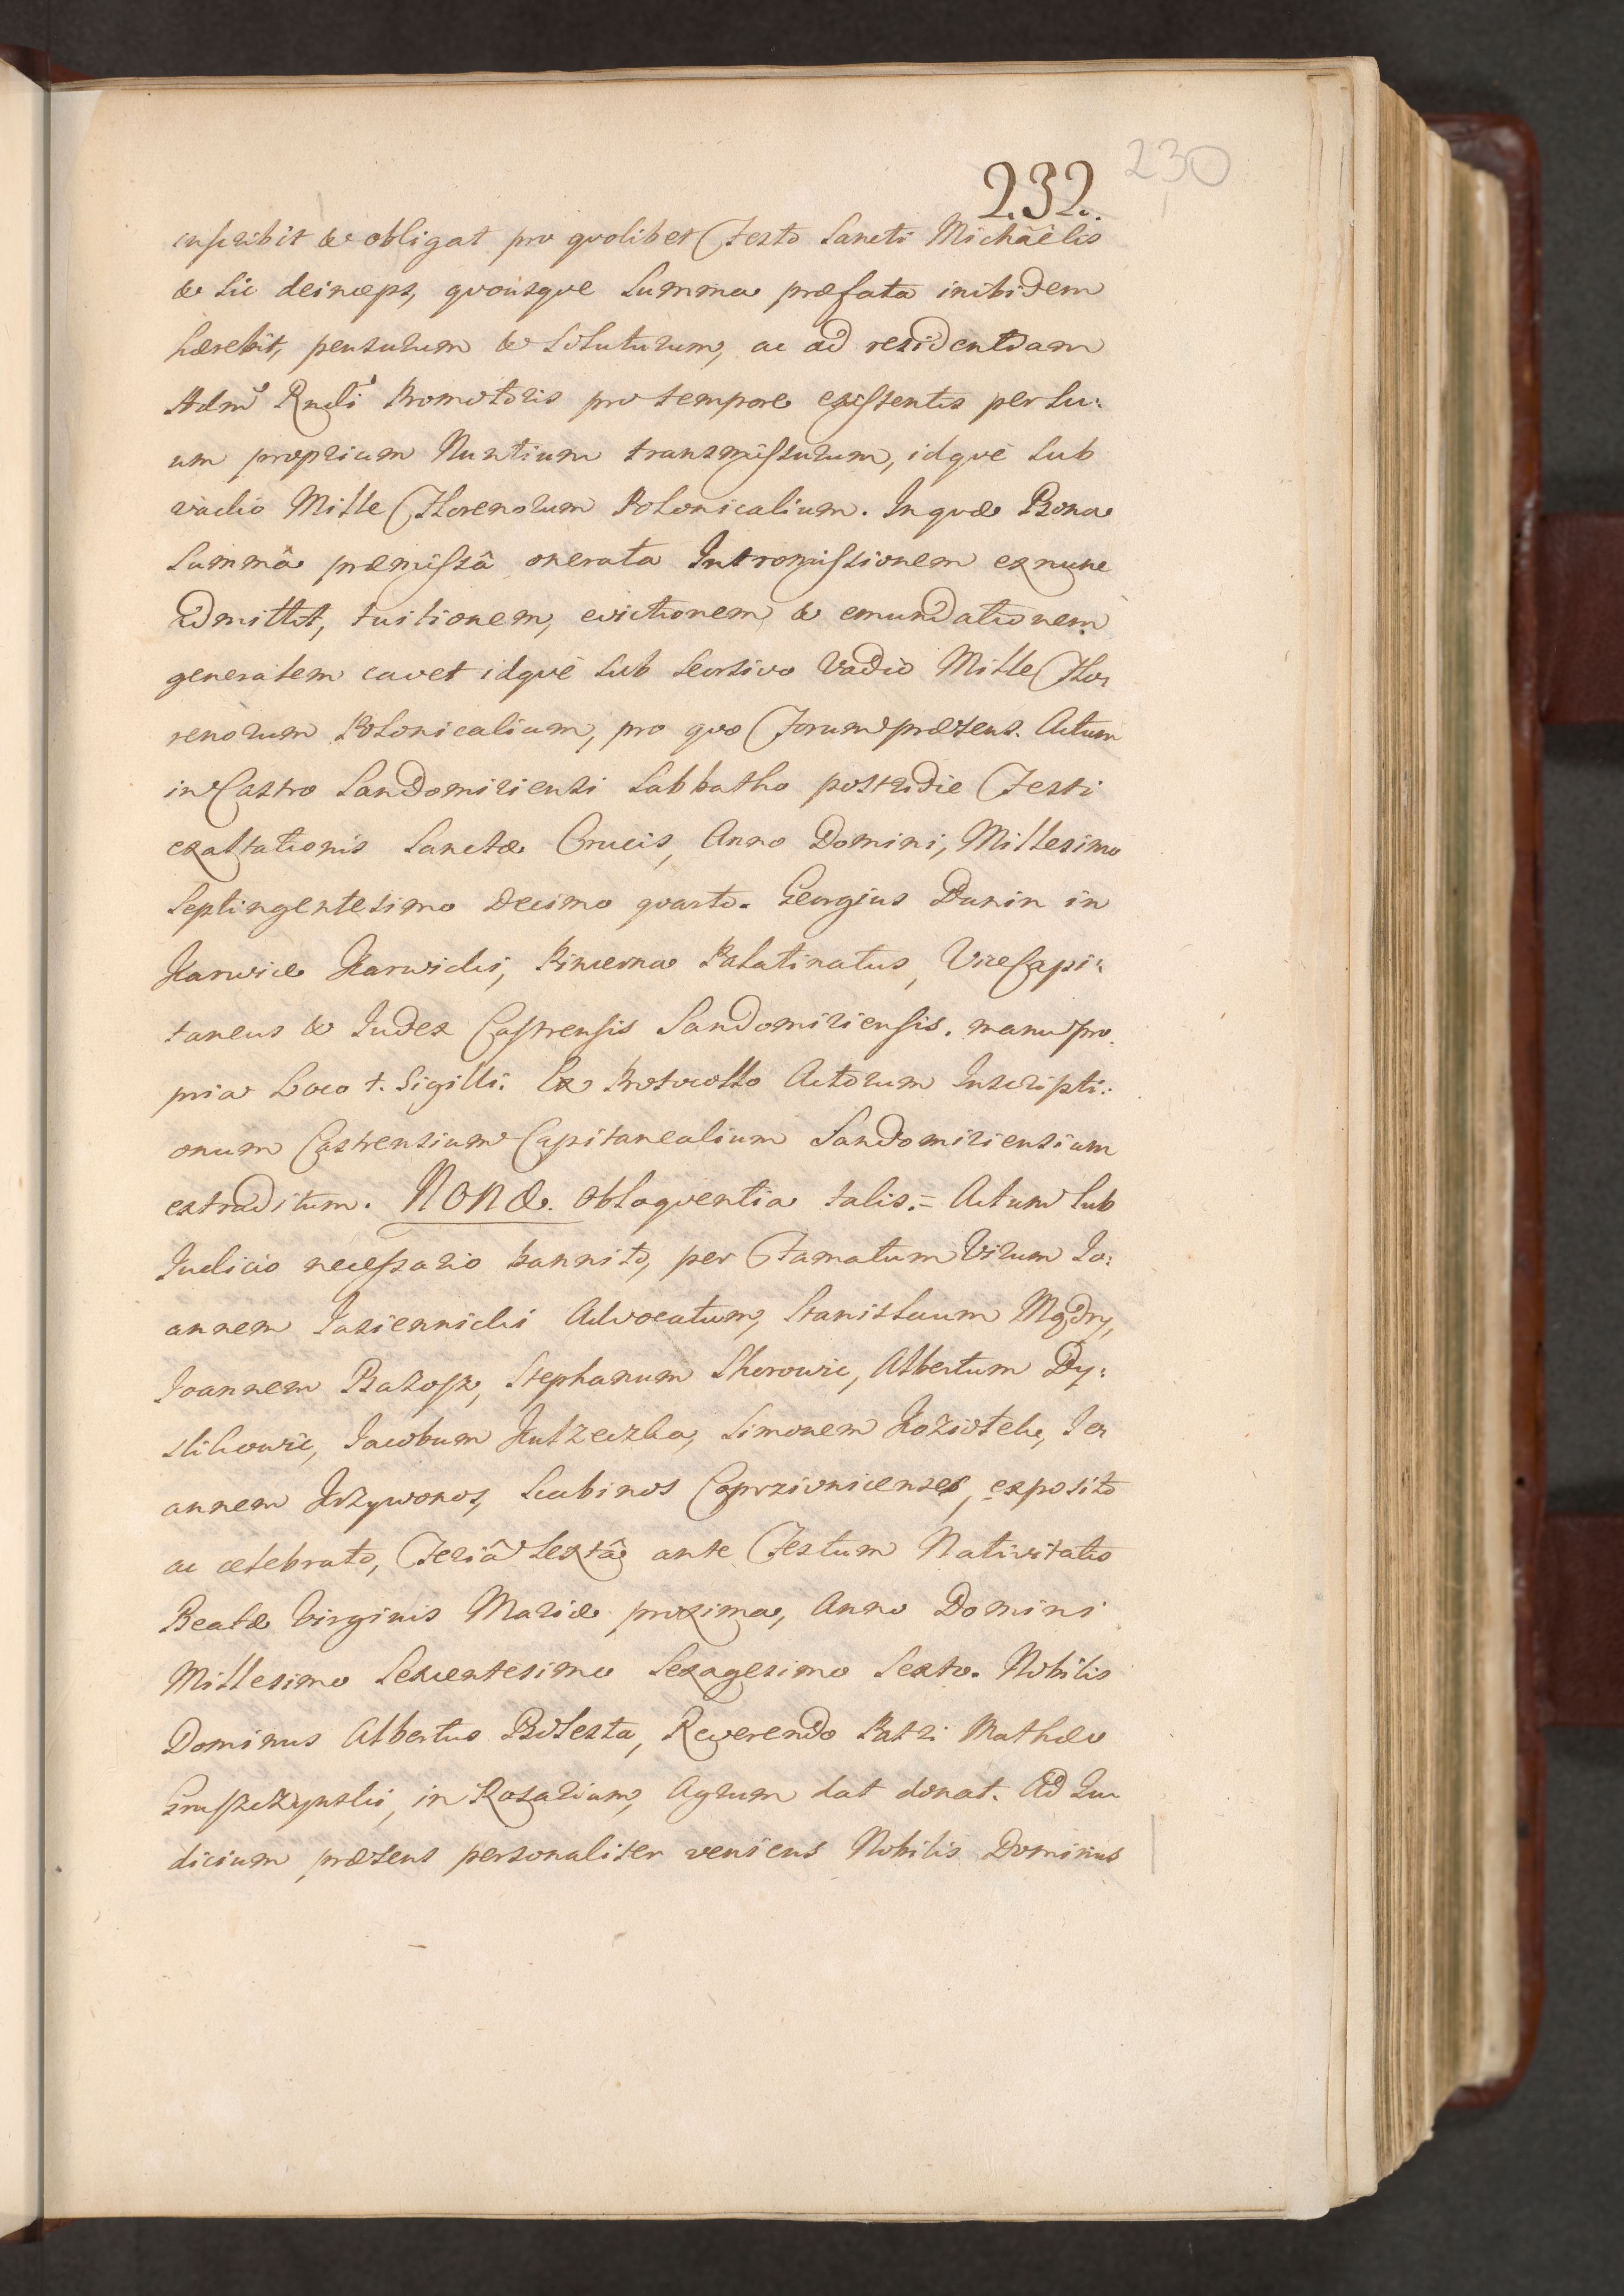 230
232.
inscribit & obligat pro qvolibet Festo Sancti Michaëlis
& sic deinceps, qvousqve Summa præfata inibidem
hærebit, pensurum & soluturum, ac ad residentiam
Admi Rndi Promotoris pro tempore existentis per su:
um proprium Nuntium transmissurum, idqve sub
vadio Mille Florenorum Polonicalium. In qvæ Bona
Summâ præmissâ onerata Intromissionem exnunc
admittit, tuitionem, evictionem & emundationem
generalem cavet idqve sub seorsivo Vadio Mille Flo:
renorum Polonicalium, pro qvo Forum præsens. Actum
in Castro Sandomiriensi Sabbatho postridie Festi
exaltationis Sanctæ Crucis, Anno Domini, Millesimo
Septingentesimo decimo qvarto. Georgius Dunin in
Karwice Karwicki, Pincerna Palatinatus, ViceCapi:
taneus & Iudex Castrensis Sandomiriensis. manu pro
pria Loco †. Sigilli. Ex Protocollo Actorum Inscripti:
onum Castrensium Capitanealium Sandomiriensium
extraditum. NONÆ. obloqventia talis.= Actum sub
Iudicio necessario bannito, per Famatum Virum Io:
annem Iasiennicki Advocatum, Stanislaum Mądry,
Ioannem Bazosz, Stephanum Skorowic, Albertum Dy:
slikowic, Iacobum Kutzeczka, Simonem Koziołek, Io
annem Krzywonos, Scabinos Coprzivnicenses, exposito
ac celebrato, Feriâ Sextâ ante Festum Nativitatis
Beatæ Virginis Mariæ proxima, Anno Domini
Millesimo Sexcentesimo Sexagesimo Sexto. Nobilis
Dominus Albertus Bolesta, Reverendo Patri Mathæo
Gruszczynski, in Rosarium, Agrum dat donat. Ad Iu
dicium præsens personaliter veniens Nobilis Dominus